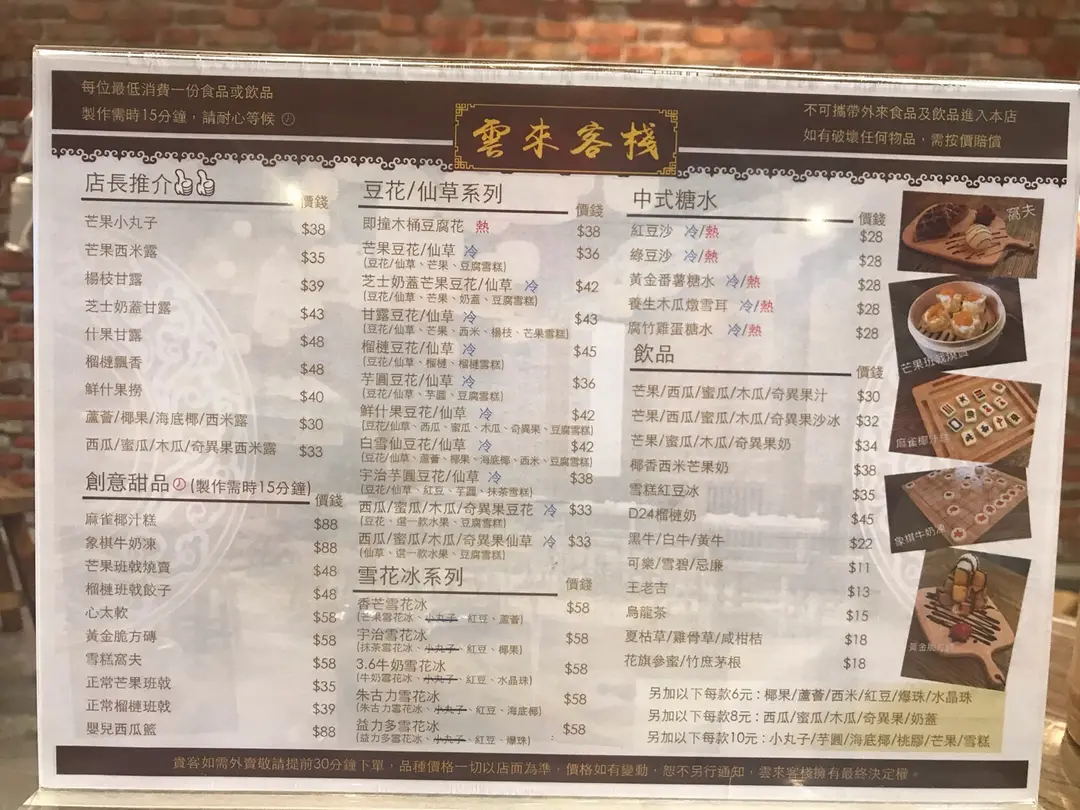 每位最低消費一份食品或飲品
製作需時15分鐘，請耐心等候
雲來客棧
不可攜帶外來食品及飲品進入本店
如有破壞任何物品，需按價賠償
店長推介
價錢
芒果小丸子 $38
芒果西米露 $35
楊枝甘露 $39
芝士奶蓋甘露 $43
什果甘露 $48
榴槤飄香 $48
鮮什果撈 $40
蘆薈/椰果/海底椰/西米露 $30
西瓜/蜜瓜/木瓜/奇異果西米露 $33
創意甜品(製作需時15分鐘) 價錢
麻雀椰汁糕 $88
象棋牛奶凍 $88
芒果班戟燒賣 $48
榴槤班戟餃子 $48
心太軟 $58
黃金脆方磚 $58
雪糕窩夫 $58
正常芒果班戟 $35
正常榴槤班戟 $39
嬰兒西瓜籃 $88
豆花/仙草系列 價錢
即撞木桶豆腐花 熱 $38
芒果豆花/仙草 冷 $36
(豆花/仙草、芒果、豆腐雪糕)
芝士奶蓋芒果豆花/仙草 冷 $42
(豆花/仙草、芒果、奶蓋、豆腐雪糕)
甘露豆花/仙草 冷 $43
(豆花/仙草、芒果、西米、楊枝、芒果雪糕)
榴槤豆花/仙草 冷 $45
(豆花/仙草、榴槤、榴槤雪糕)
芋圓豆花/仙草 冷 $36
(豆花/仙草、芋圓、豆腐雪糕)
鮮什果豆花/仙草 冷 $42
(豆花/仙草、西瓜、蜜瓜、木瓜、奇異果、豆腐雪糕)
白雪仙豆花/仙草 冷 $42
(豆花/仙草、蘆薈、椰果、海底椰、西米、豆腐雪糕)
宇治芋圓豆花/仙草 冷 $38
(豆花/仙草、紅豆、芋圓、抹茶雪糕)
西瓜/蜜瓜/木瓜/奇異果豆花 冷 $33
(豆花、選一款水果、豆腐雪糕)
西瓜/蜜瓜/木瓜/奇異果仙草 冷 $33
(仙草、選一款水果、豆腐雪糕)
雪花冰系列 價錢
香芒雪花冰 $58
(芒果雪花冰、小丸子、紅豆、蘆薈)
宇治雪花冰 $58
(抹茶雪花冰、小丸子、紅豆、椰果)
3.6牛奶雪花冰 $58
(牛奶雪花冰、小丸子、紅豆、水晶珠)
朱古力雪花冰 $58
(朱古力雪花冰、小丸子、紅豆、海底椰)
益力多雪花冰 $58
(益力多雪花冰、小丸子、紅豆、爆珠)
中式糖水 價錢
紅豆沙 冷/熱 $28
綠豆沙 冷/熱 $28
黃金番薯糖水 冷/熱 $28
養生木瓜燉雪耳 冷/熱 $28
腐竹雞蛋糖水 冷/熱 $28
飲品 價錢
芒果/西瓜/蜜瓜/木瓜/奇異果汁 $30
芒果/西瓜/蜜瓜/木瓜/奇異果沙冰 $32
芒果/蜜瓜/木瓜/奇異果奶 $34
椰香西米芒果奶 $38
雪糕紅豆冰 $35
D24榴槤奶 $45
黑牛/白牛/黃牛 $22
可樂/雪碧/忌廉 $11
王老吉 $13
烏龍茶 $15
夏枯草/雞骨草/咸柑桔 $18
花旗參蜜/竹庶茅根 $18
另加以下每款6元：椰果/蘆薈/西米/紅豆/爆珠/水晶珠
另加以下每款8元：西瓜/蜜瓜/木瓜/奇異果/奶蓋
另加以下每款10元：小丸子/芋圓/海底椰/桃膠/芒果/雪糕
窩夫
芒果班戟燒賣
麻雀椰汁糕
象棋牛奶凍
黃金脆方磚
貴客如需外賣敬請提前30分鐘下單，品種價格一切以店面為準，價格如有變動，恕不另行通知，雲來客棧擁有最終決定權。